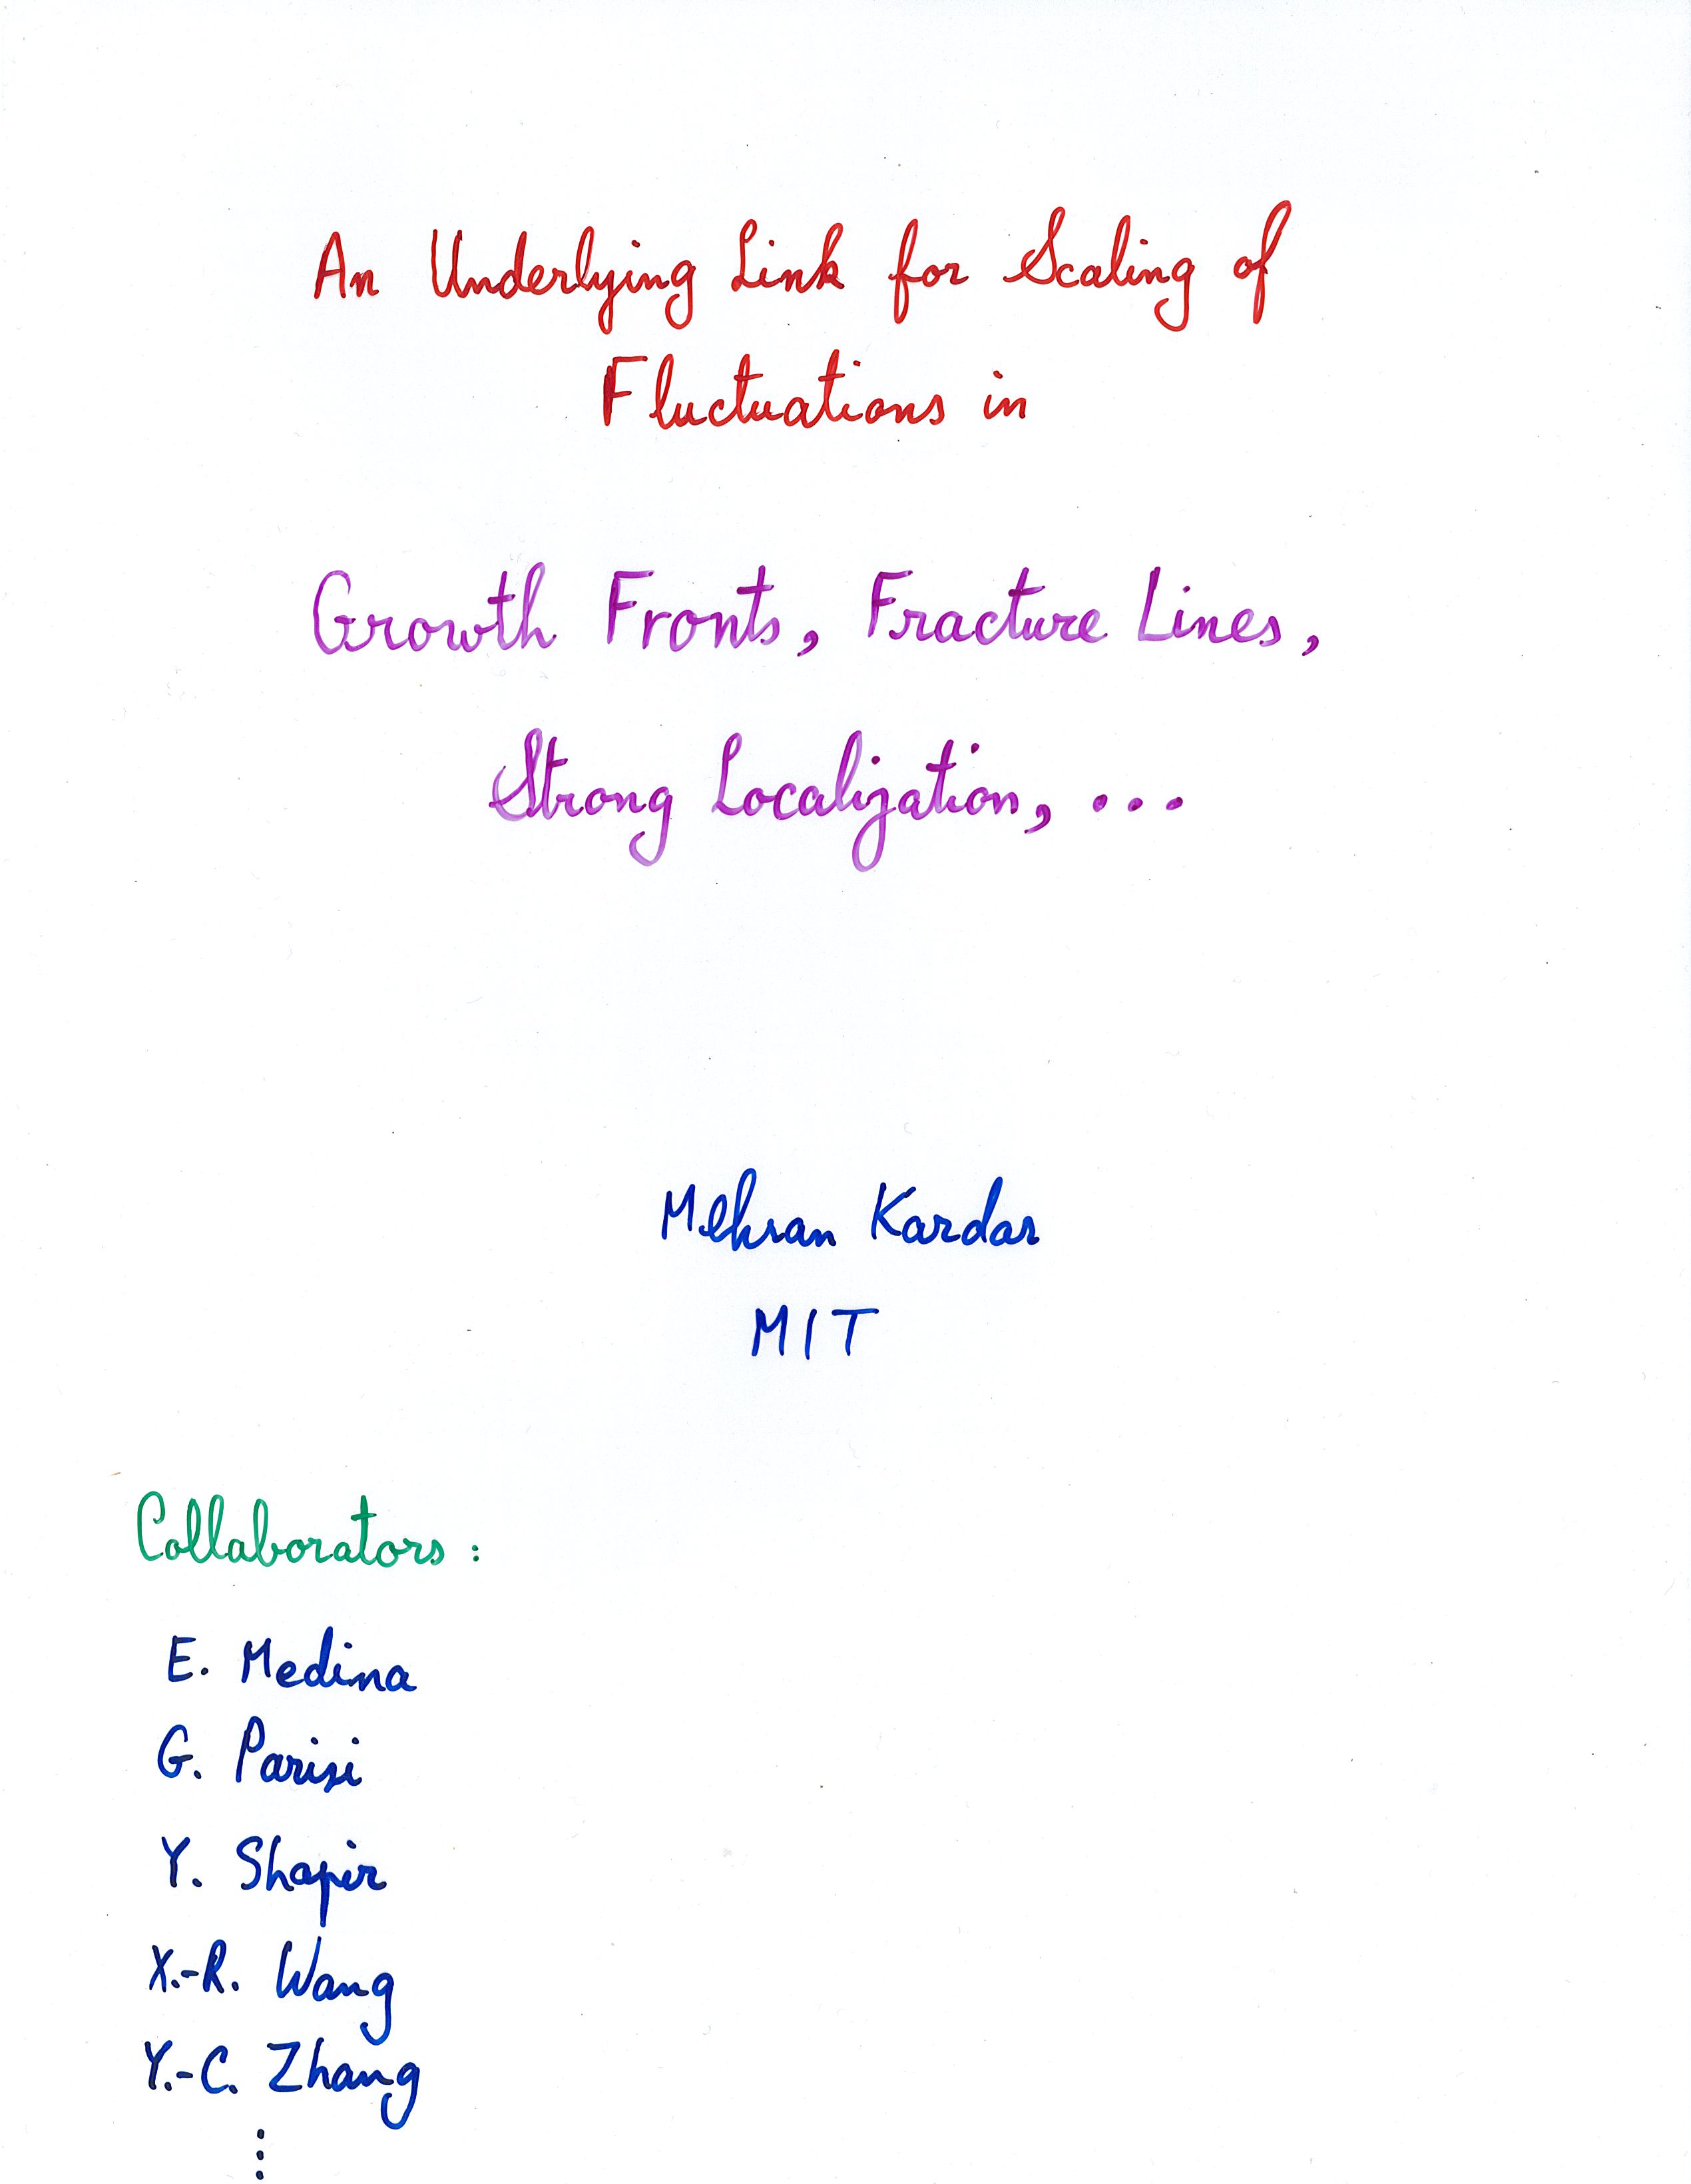 An Underlying Link for Scaling of
Fluctuations in
Growth Fronts, Fracture Lines,
Strong Localization, ...
Mehran Kardar
MIT
Collaborators :
E. Medina
G. Parisi
Y. Shapir
X.-R. Wang
Y.-C. Zhang
⋮